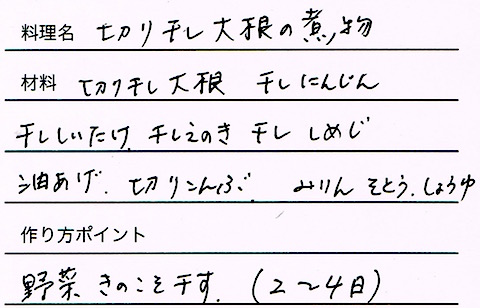 料理名 切り干し大根の煮物
材料 切り干し大根 干しにんじん
干ししいたけ、干しえのき 干ししめじ
油あげ、切りこんぶ、みりん さとう、しょうゆ
作り方ポイント
野菜、きのこを干す。(2〜4日)